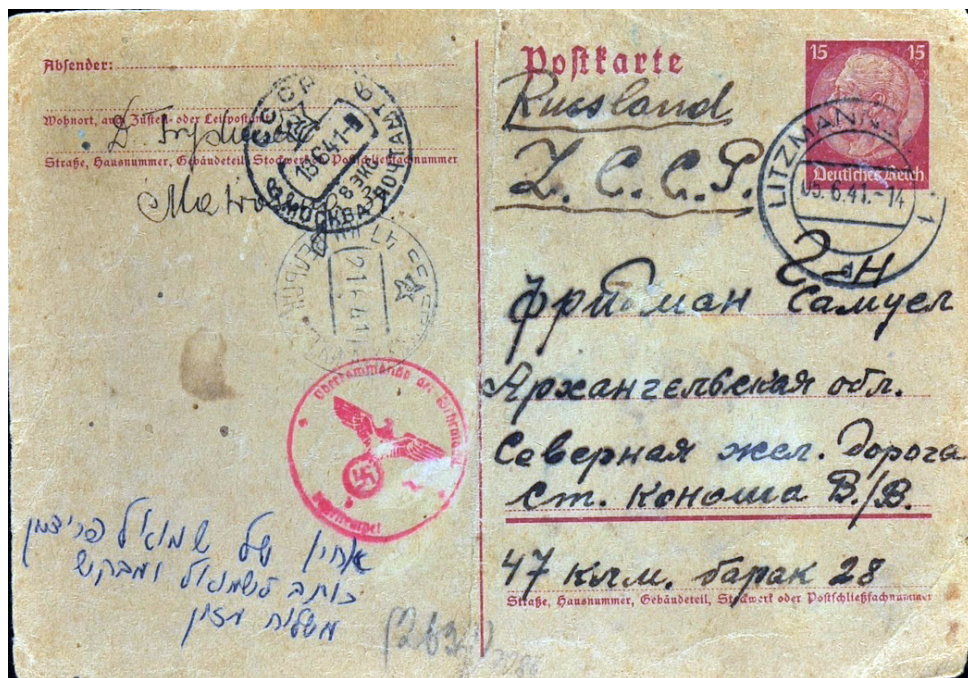 Absender:
Wohnort, auch Zustell- oder Leitpostamt
D. Frydman
Straße, Hausnummer, Gebäudeteil, Stockwerk oder Postschließfachnummer
СССР
МОСКВА ПОЧТАМТ
13641-1
8 ЭКС.
21641
Oberkommando der Wehrmacht
אחיו של שמואל פרידמן
כותב לשמואל ומבקש
משלוח מזון
Postkarte
15 15
Deutsches Reich
LITZMANNS
05.6.41.-14
1
Russland
Z.C.C.P.
Г-Н
Фридман Самуел
Архангельская обл.
Северная жел. Дорога
Ст. Коноша В./В.
47 килм. барак 28
Straße, Hausnummer, Gebäudeteil, Stockwerk oder Postschließfachnummer